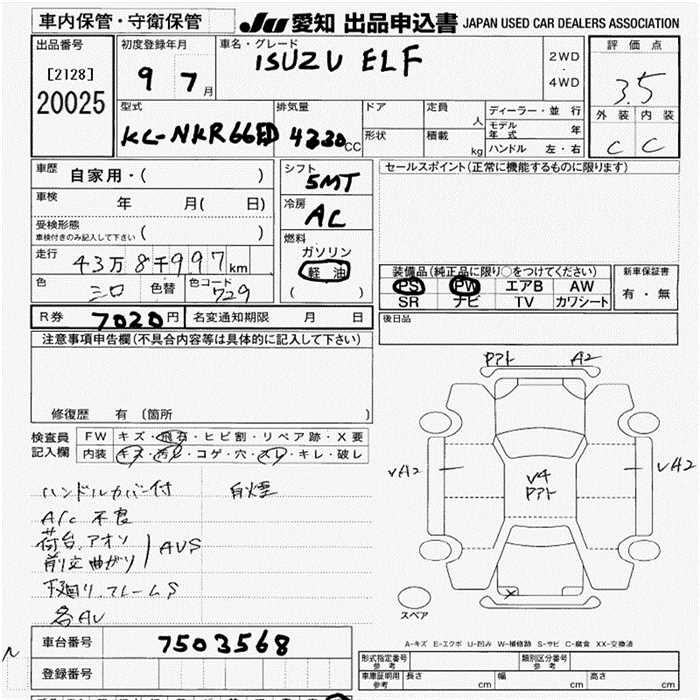 車内保管・守衛保管 JU 愛知 出品申込書 JAPAN USED CAR DEALERS ASSOCIATION
出品番号 初度登録年月 車名・グレード 2WD ・ 4WD 評価点
[2128] 9 7月 ISUZU ELF 3.5
20025 外装 内装
型式 排気量 ドア 定員 人 ディーラー・並行
KC-NKR66ED 4330CC 形状 積載 kg モデル年式 年
ハンドル 左・右 C C
車歴 自家用・( ) シフト 5MT セールスポイント(正常に機能するものに限ります)
車検 年 月( 日) 冷房 AC
受検形態
車検付きのみ記入して下さい ( ) 燃料
走行 43万8千997km ガソリン
軽油
( )
装備品(純正品に限り○をつけてください) 新車保証書
色 シロ 色替 色コード 729 PS PW エアB AW 有・無
SR ナビ TV カワシート
R券 7020円 名変通知期限 月 日 後日品
注意事項申告欄(不具合内容等は具体的に記入して下さい)
修復歴 有 (箇所 )
検査員記入欄 FW キズ・飛石・ヒビ割・リペア跡・X要
内装 キズ・汚レ・コゲ・穴・スレ・キレ・破レ
アト A2
ハンドルカバー付 自煙
A/c 不良
荷台 アオリ
前立 曲がり AUS
下回り、フレームS
各AU
VA2 V4 VA2
アト
X
スペア
A-キズ E-エクボ U-凹み W-補修跡 S-サビ C-腐食 XX-交換済
車台番号 7503568
登録番号
形式指定番号 参考 類別区分番号 参考
車庫証明用 参考 長さ cm 幅 cm 高さ cm